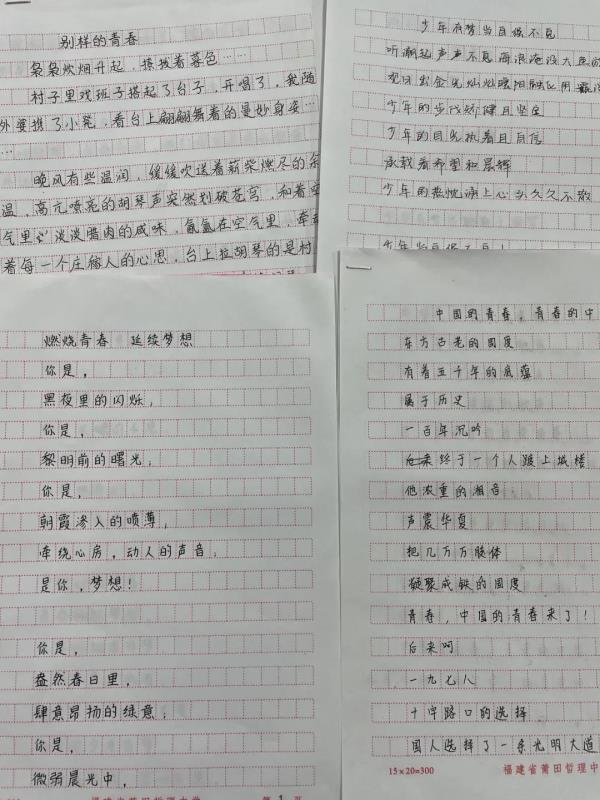 别样的青春
袅袅炊烟升起，摇拽着暮色……
村子里戏班子搭起了台子，开唱了，我随
外婆携了小凳，看台上翩翩舞着的曼妙身姿…
…
晚风有些温润，缓缓吹送着薪柴燃尽的余
温，高亢嘹亮的胡琴声突然划破苍穹，和着空
气里淡淡腊肉的咸味，氤氲在空气里，牵动
着每一个庄稼人的心思，台上拉胡琴的是村
少年有梦当自强不息
听潮起声声不息
观日出金光灿灿暖阳融
少年的步伐矫健且坚定
少年的目光执着且自信
承载着希望和晨辉
少年的热忱涌上心头久久不散
少年当自强不息！
燃烧青春 延续梦想
你是，
黑夜里的闪烁；
你是，
黎明前的曙光；
你是，
朝霞渗入的喷薄，
牵绕心房，动人的声音；
是你，梦想！
你是，
盎然春日里，
肆意昂扬的绿意；
你是，
微弱晨光中，
第 1 页
中国的青春，青春的中
东方古老的国度
有着五千年的底蕴
属于历史
一百年沉吟
终于一个人踱上城楼
他浓重的湘音
声震华夏
把几万万肢体
凝聚成铁的国度
青春，中国的青春来了！
后来呵
一九七八
十字路口的选择
国人选择了一条光明大道
15×20=300
福建省莆田哲理中